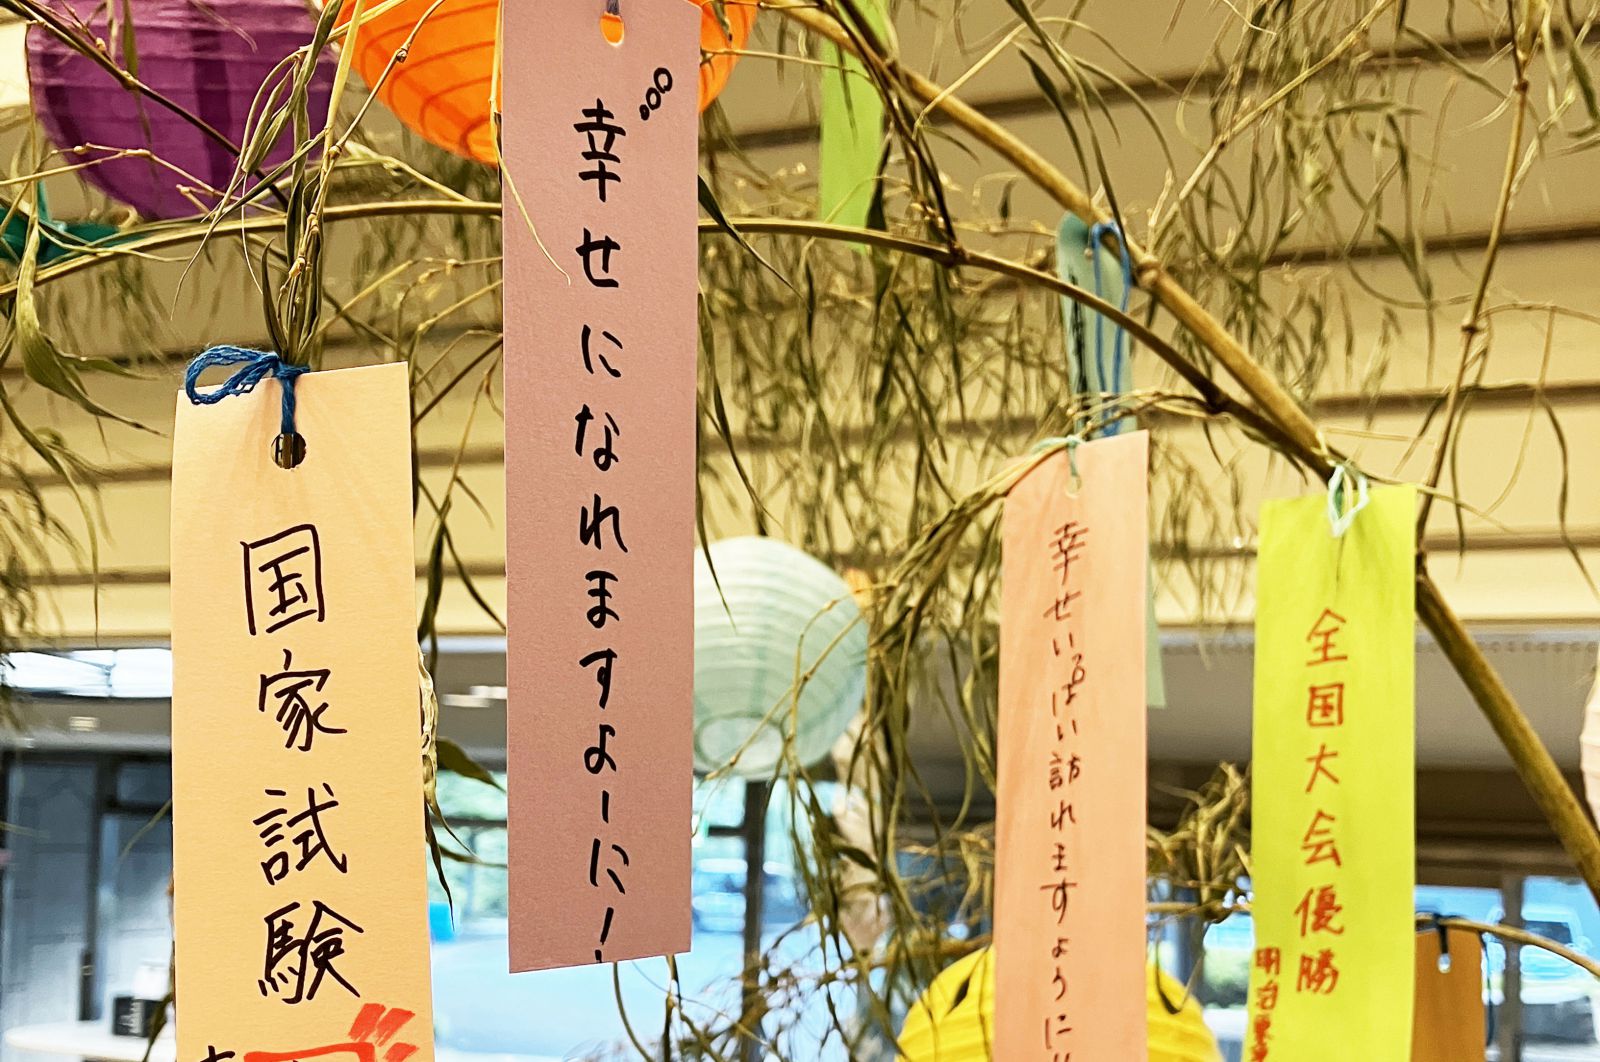 国家試験
幸せになれますよーに!
幸せいっぱい訪れますように!!
全国大会優勝
明治